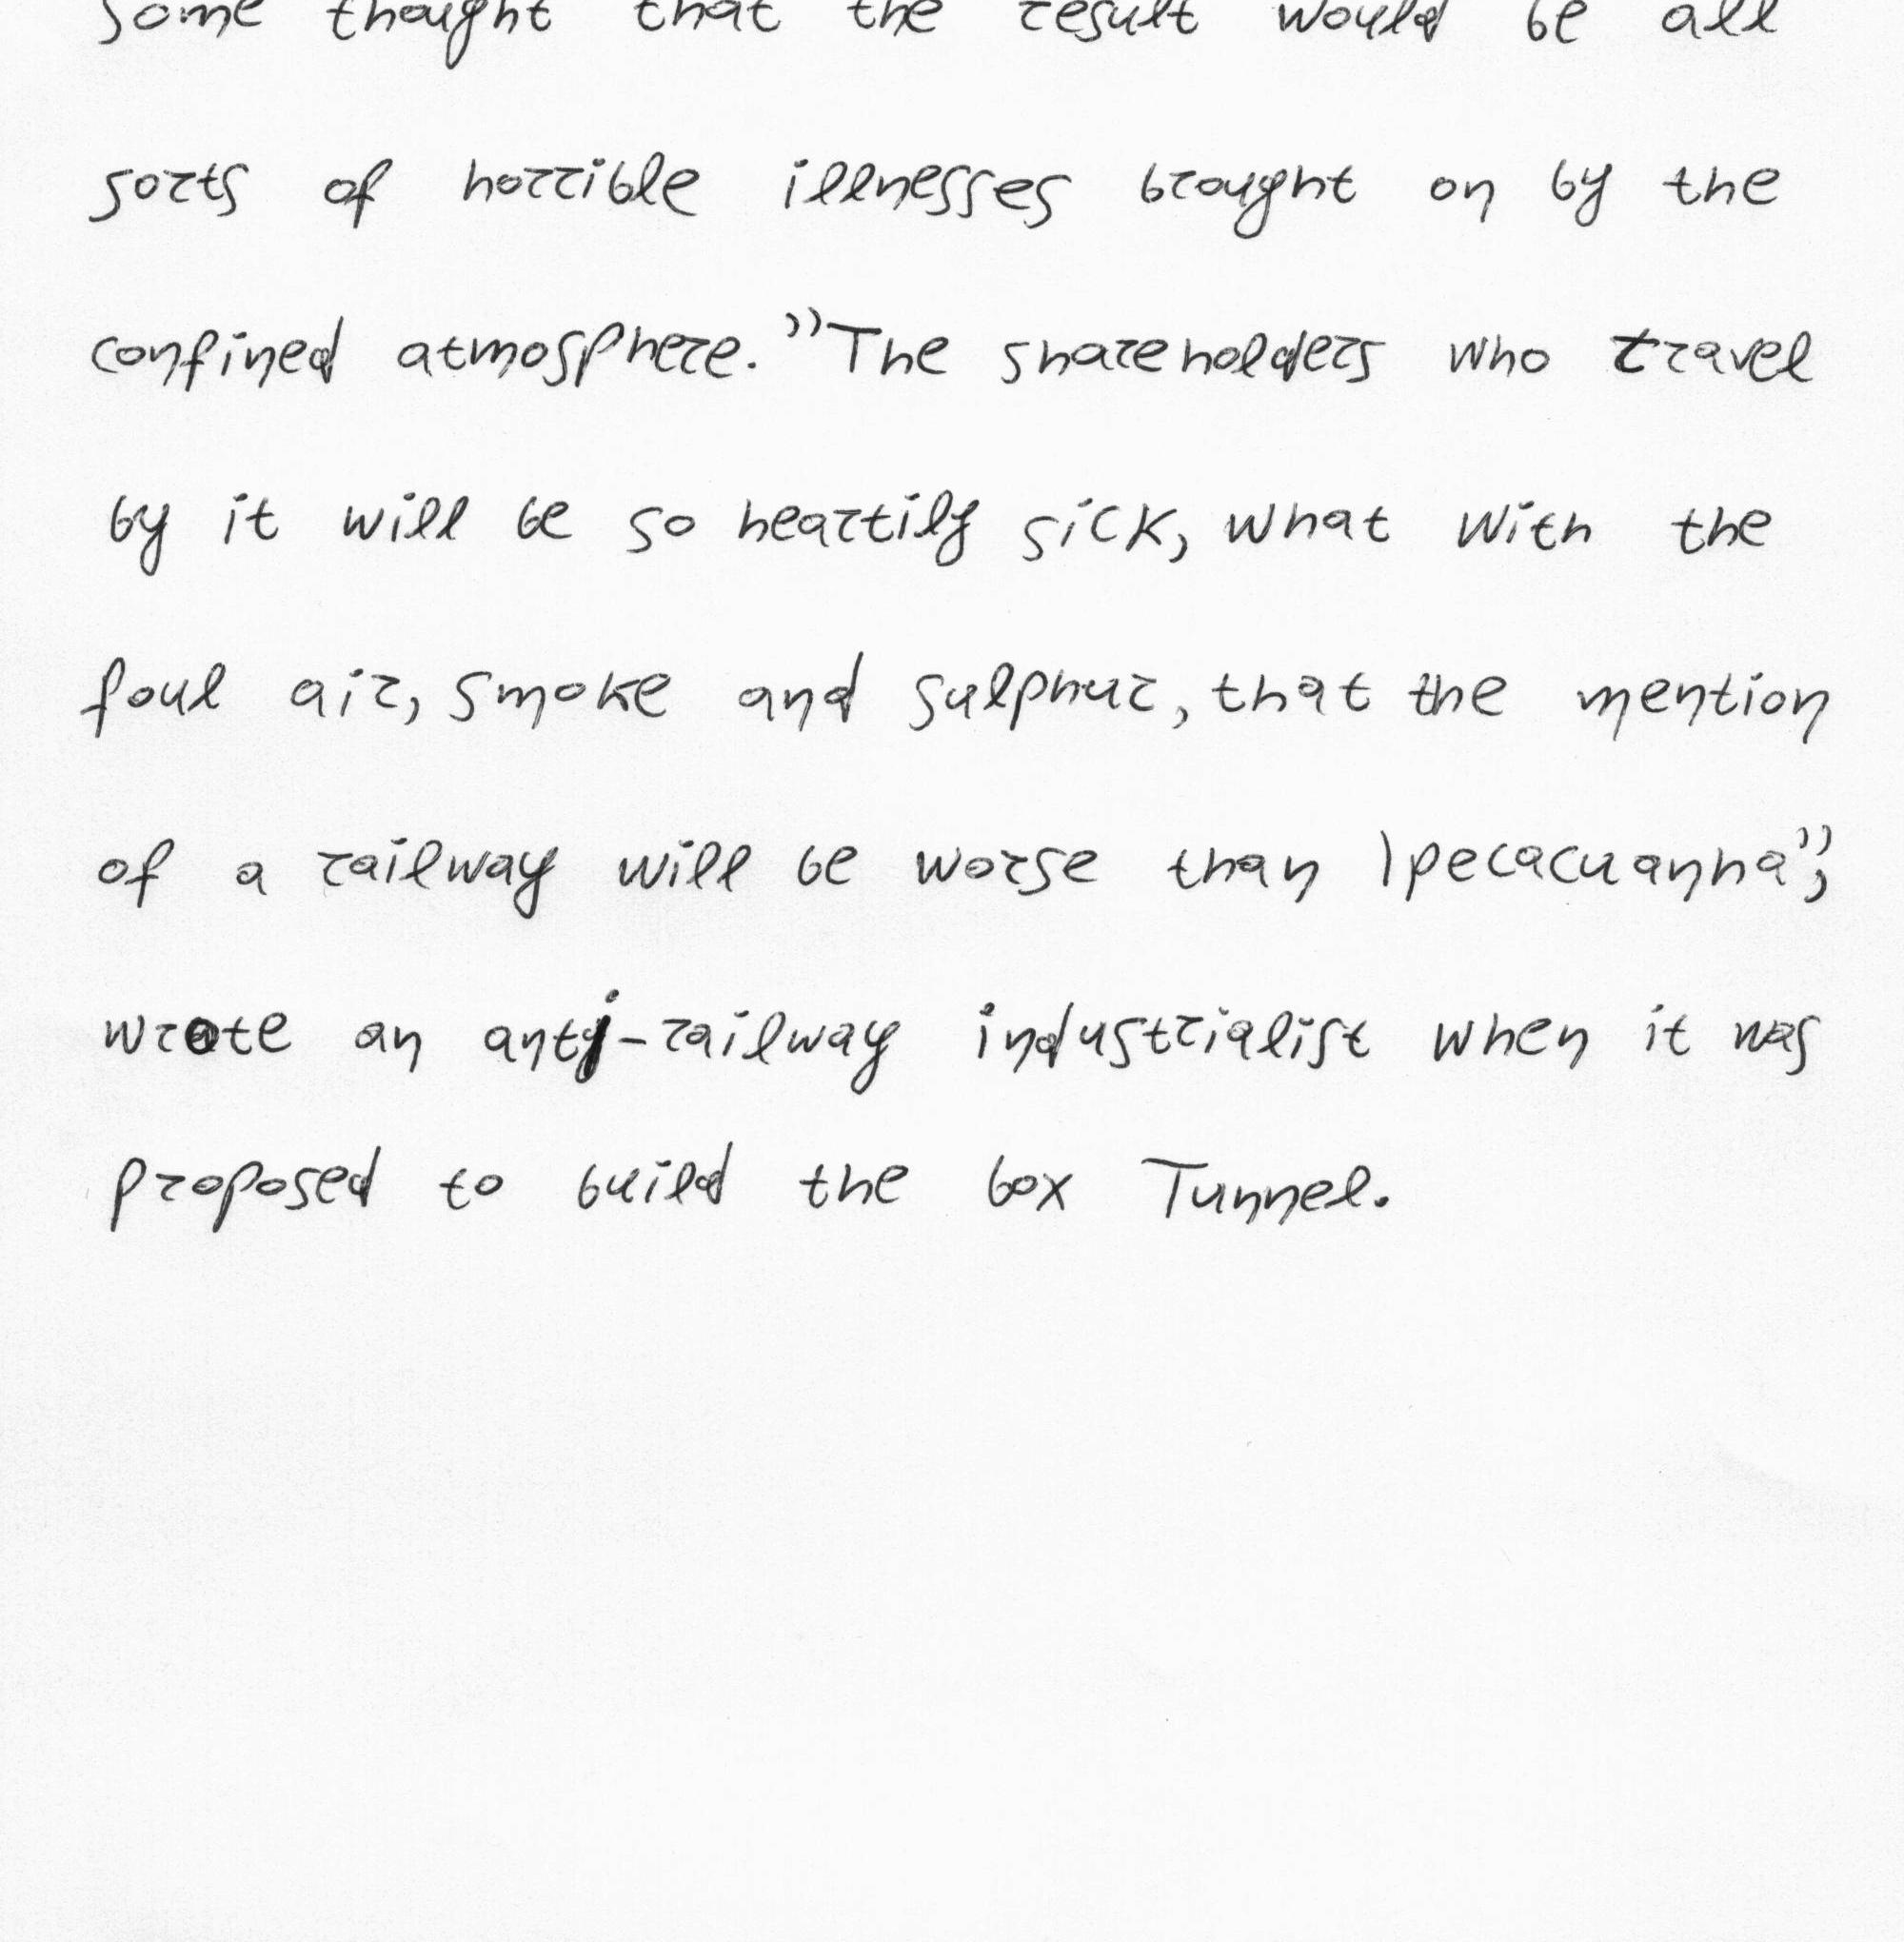 Some thought that the result would be all
sorts of horrible illnesses brought on by the
confined atmosphere. "The shareholders who travel
by it will be so heartily sick, what with the
foul air, smoke and sulphur, that the mention
of a railway will be worse than Ipecacuanna",
wrote an anti-railway industrialist when it was
proposed to build the box Tunnel.